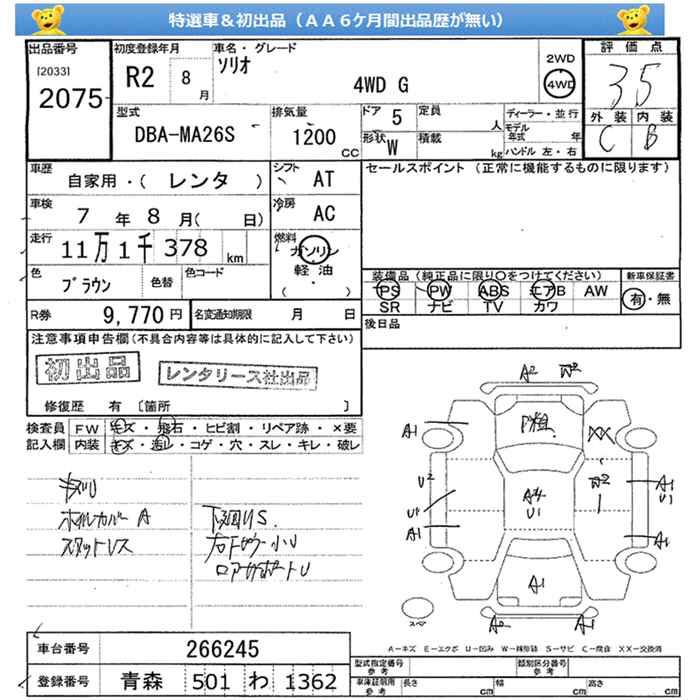 特選車＆初出品（ＡＡ６ケ月間出品歴が無い）
出品番号 初度登録年月 車名・グレード 評価点
[2033] 2075 R2 8月 ソリオ 4WD G 2WD 4WD 3.5
型式 排気量 ドア 5 定員 人 ディーラー・並行 外装 内装
DBA-MA26S 1200 CC 形状 W 積載 kg モデル年式 年 C B
ハンドル 左・右
車歴 自家用・( レンタ ) シフト AT セールスポイント （正常に機能するものに限ります）
車検 7年 8月( 日) 冷房 AC
走行 11万1千378 km 燃料 ガソリン 軽油 ( ・ )
色 ブラウン 色替 色コード
装備品（純正品に限り○をつけてください） 新車保証書
PS PW ABS エアB AW 有・無
SR ナビ TV カワ
R券 9,770円 名変通知期限 月 日 後日品
注意事項申告欄(不具合内容等は具体的に記入して下さい)
初出品 レンタリース社出品
修復歴 有 〔箇所 〕
検査員 FW キズ・飛石・ヒビ割・リペア跡・×要
記入欄 内装 キズ・汚レ・コゲ・穴・スレ・キレ・破レ
キズU
ホイルカバー A 下廻りS.
スタットレス 右ドア小U
ロアサポートU
A2 W2
A1 XX
U2 U1 A1
A4 U1
W2 1
A1 U1
A1
A1
A2 A1
スペア
A＝キズ E＝エクボ U＝凹み W＝補修跡 S＝サビ C＝腐食 XX＝交換済
車台番号 266245 型式指定番号 参考 類別区分番号 参考
登録番号 青森 501 わ 1362 車庫証明用 参考 長さ cm 幅 cm 高さ cm